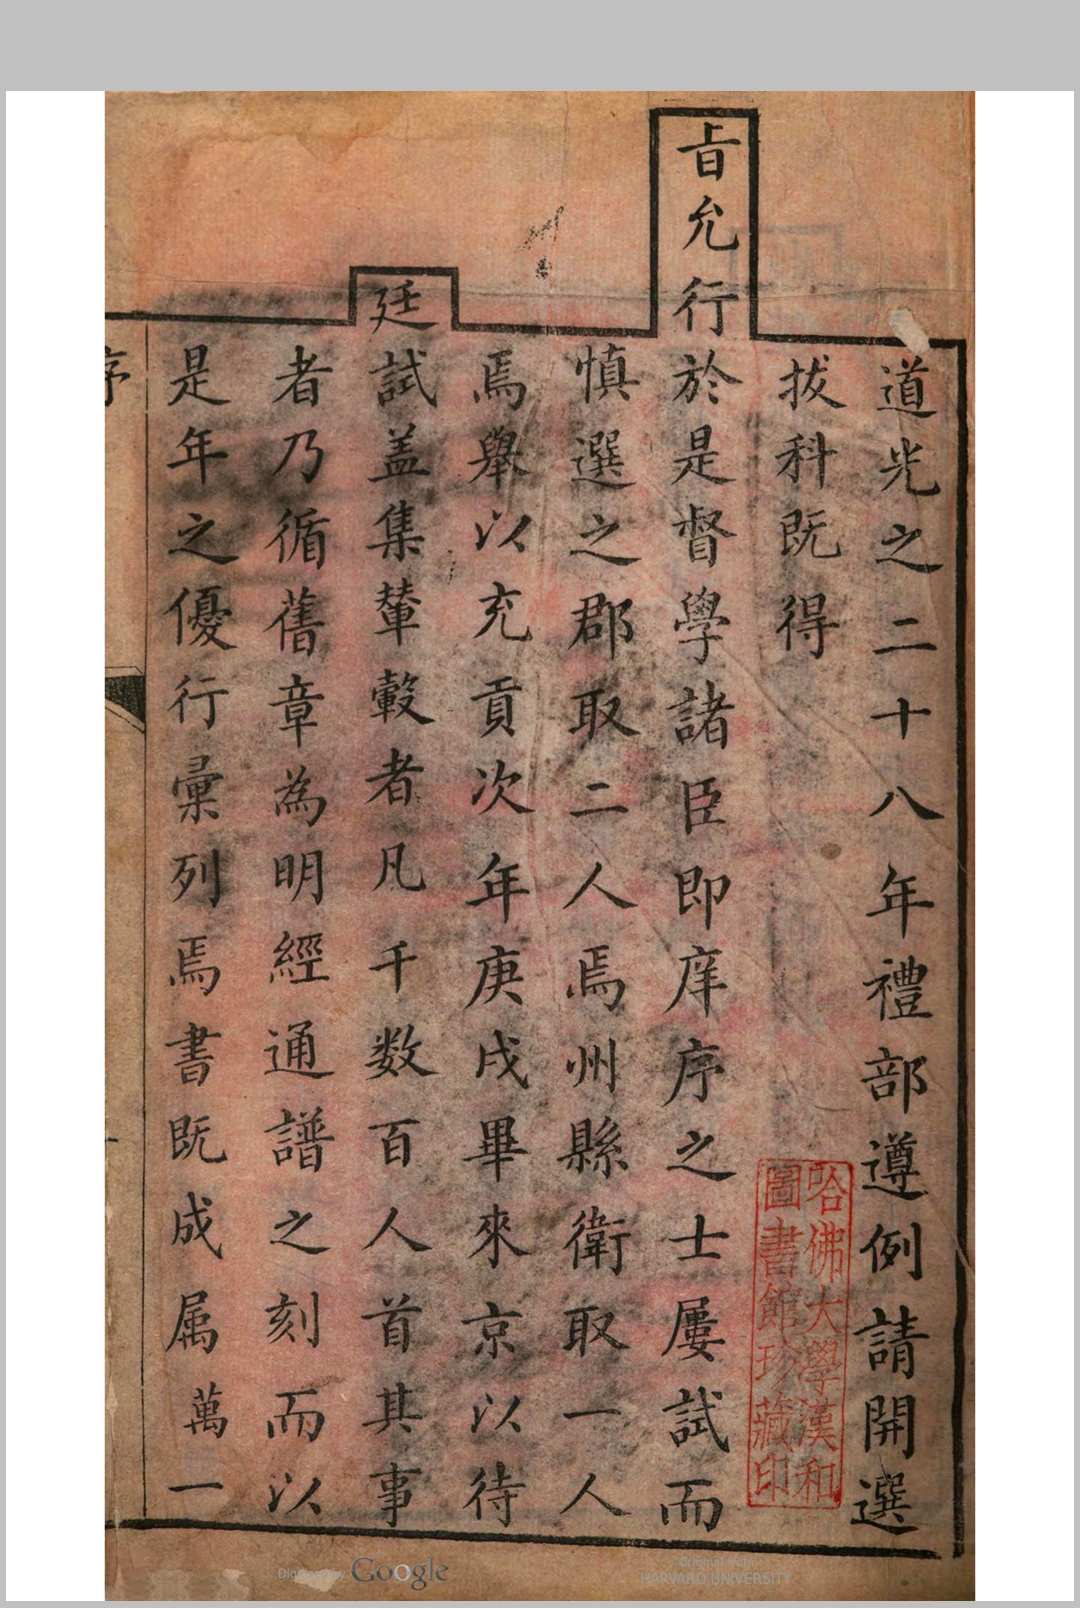 道光之二十八年禮部遵例請開選
拔科既得
旨允行於是督學諸臣即庠序之士屢試而
慎選之郡取二人焉州縣衛取一人
焉舉以充貢次年庚戌畢來京以待
廷試盖集輦轂者凡千数百人首其事
者乃循舊章為明經通譜之刻而以
是年之優行彙列焉書既成属萬一
序
哈佛大學漢和
圖書館珍藏印
Digitized by Google
Original from
HARVARD UNIVERSITY